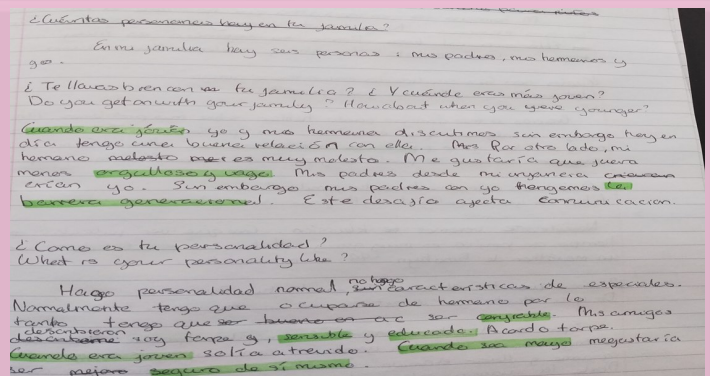 ¿Cuántas personas hay en tu familia?
En mi familia hay seis personas: mis padres, mis hermanos y
yo.
¿Te llevas bien con tu familia? ¿Y cuándo eras más joven?
Do you get on with your family? How about when you were younger?
Cuando era jóven yo y mis hermana discutimos sin embargo hoy en
día tengo una buena relación con ella. Por otro lado, mi
hermano es muy molesto. Me gustaría que fuera
menos orgulloso y vago. Mis padres desde mi infancia
crían yo. Sin embargo mis padres con yo la
barrera generacional. Este desafío afecta comunicación.
¿Como es tu personalidad?
What is your personality like?
personalidad normal, no hago características de especiales.
Normalmente tengo que ocuparse de hermano por lo
tanto tengo que ser confiable. Mis amigos
soy y, sensible y educado. torpe.
Cuando era joven solía atrevido. Cuando sea mayo megustaría
ser seguro de sí mismo.